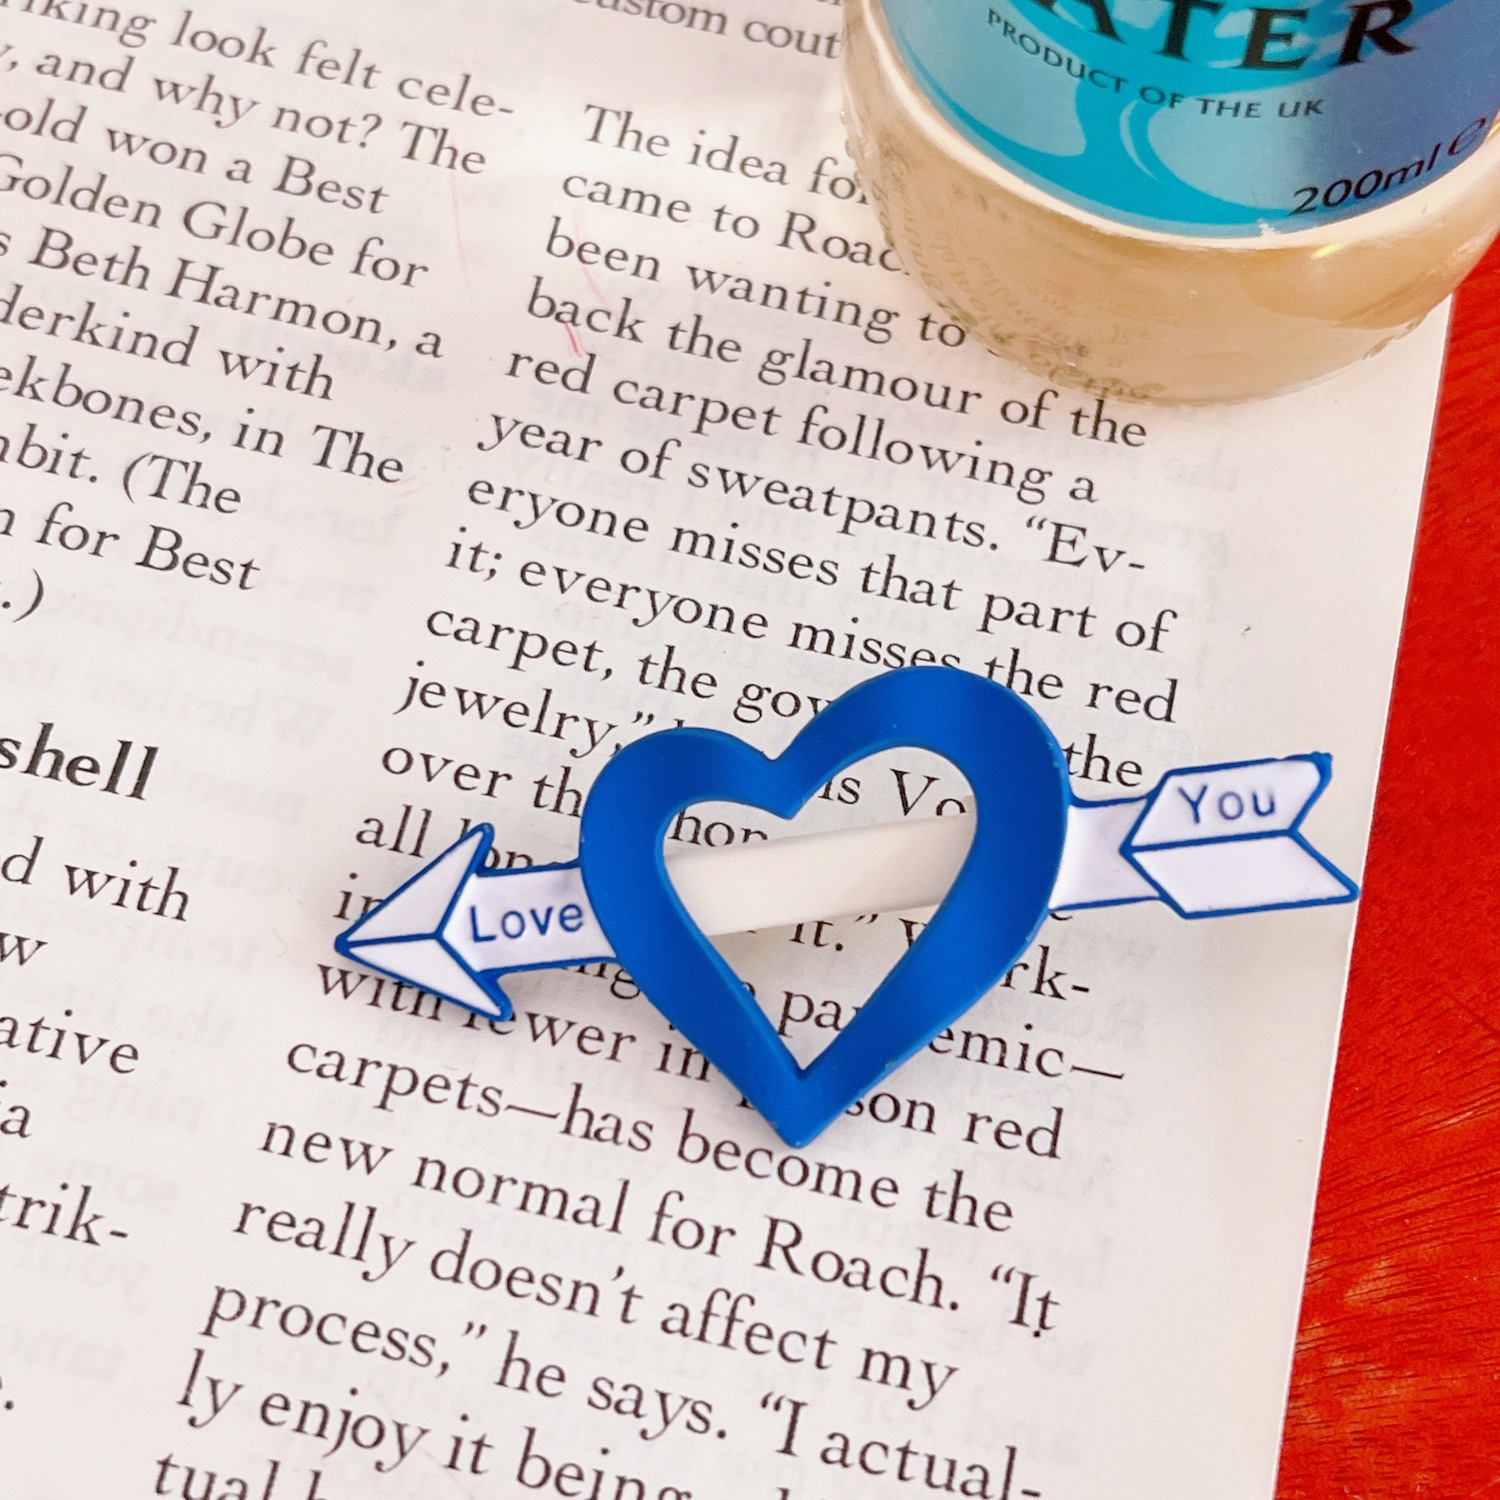 king look felt cele-
, and why not? The
old won a Best
Golden Globe for
s Beth Harmon, a
derkind with
ekbones, in The
bit. (The
for Best
.)
shell
d with
w
ative
ia
trik-
custom cout
The idea fo
came to Roac
been wanting to
back the glamour of the
red carpet following a
year of sweatpants. “Ev-
eryone misses that part of
it; everyone misses the red
carpet, the gow
jewelry,” the
over th is Vo
all hon
in it.”
with fewer in pa emic—
carpets—has become the
new normal for Roach. “It
really doesn’t affect my
process,” he says. “I actual-
ly enjoy it being
tual
rk-
son red
ATER
PRODUCT OF THE UK
200ml e
Love
You